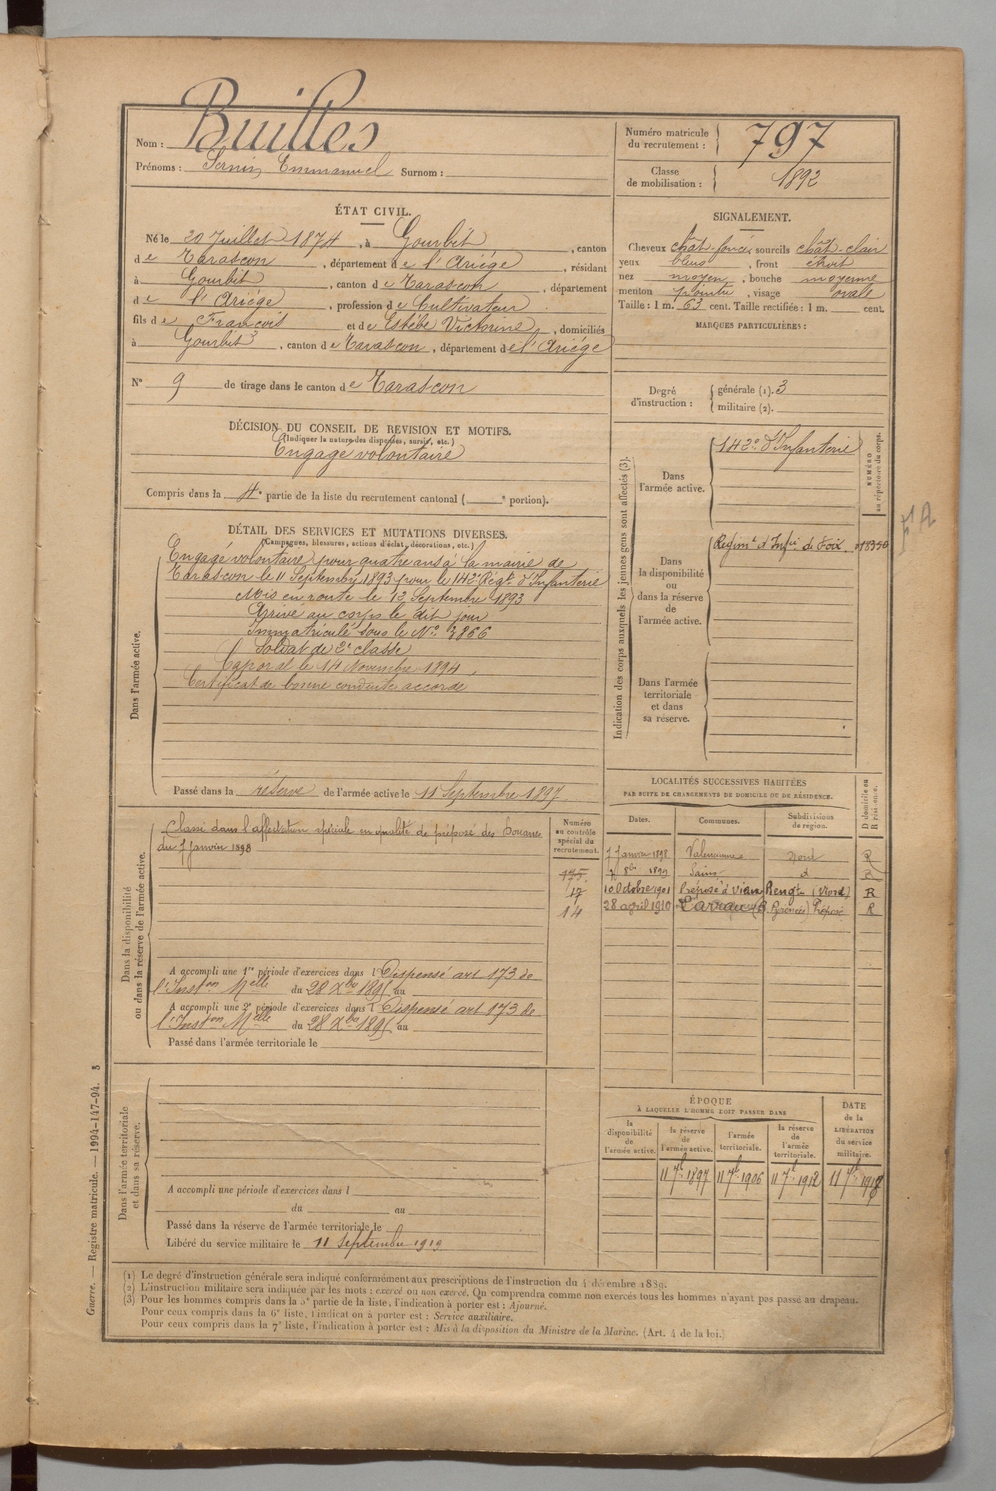 Nom : Builles
Prénoms : Sernin Emmanuel Surnom :
Numéro matricule du recrutement : 797
Classe de mobilisation : 1892
ÉTAT CIVIL.
Né le 20 Juillet 1874, à Gourbit, canton
de Tarascon, département de l'Ariége, résidant
à Gourbit, canton de Tarascon, département
de l'Ariége, profession de Cultivateur
fils de François et de Estèbe Victorine, domiciliés
à Gourbit, canton de Tarascon, département de l'Ariége
N° 9 de tirage dans le canton de Tarascon
SIGNALEMENT.
Cheveux chât-foncé, sourcils chât-clair
yeux bleus, front étroit
nez moyen, bouche moyenne
menton pointu, visage ovale
Taille : 1 m. 63 cent. Taille rectifiée : 1 m. cent.
MARQUES PARTICULIÈRES :
Degré d'instruction : générale (1). 3
militaire (2).
DÉCISION DU CONSEIL DE REVISION ET MOTIFS.
(Indiquer la nature des dispenses, sursis, etc.)
Engagé volontaire
Compris dans la 4e partie de la liste du recrutement cantonal ( e portion).
DÉTAIL DES SERVICES ET MUTATIONS DIVERSES.
(Campagnes, blessures, actions d'éclat, décorations, etc.)
Dans l'armée active.
Engagé volontaire pour quatre ans à la mairie de
Tarascon le 11 Septembre 1893 pour le 142e Régt d'Infanterie
Mis en route le 12 Septembre 1893
Arrivé au corps le dit jour
Immatriculé sous le N° 3866
Soldat de 2e classe
Caporal le 14 Novembre 1894
Certificat de bonne conduite accordé
Passé dans la réserve de l'armée active le 11 Septembre 1897
Indication des corps auxquels les jeunes gens sont affectés (3).
NUMÉRO au répertoire du corps.
Dans l'armée active. 142e d'Infanterie
Dans la disponibilité ou dans la réserve de l'armée active. Regimt d'Infie de Foix. 018350
Dans l'armée territoriale et dans sa réserve.
Dans la disponibilité ou dans la réserve de l'armée active.
Classé dans l'affectation spéciale en qualité de préposé des Douanes
du 7 Janvier 1898
Numéro au contrôle spécial du recrutement.
175.
17
14
A accompli une 1re période d'exercices dans l Dispensé art 173 de
l'Inston Melle du 28 Xbre 1895 au
A accompli une 2e période d'exercices dans l Dispensé art 173 de
l'Inston Melle du 28 Xbre 1895 au
Passé dans l'armée territoriale le
LOCALITÉS SUCCESSIVES HABITÉES
PAR SUITE DE CHANGEMENTS DE DOMICILE OU DE RÉSIDENCE.
Dates. Communes. Subdivisions de région. D domicile ou R résidence.
7 Janvier 1898 Valenciennes Nord R
8bre 1899 Sains d R
10 Octobre 1901 Préposé à (Nord) R
28 avril 1910 Larrau (B Pyrénées) Préposé R
ÉPOQUE
À LAQUELLE L'HOMME DOIT PASSER DANS
la disponibilité de l'armée active. la réserve de l'armée active. l'armée territoriale. la réserve de l'armée territoriale.
DATE de la LIBÉRATION du service militaire.
11 7bre 1897 11 7bre 1906 11 7bre 1912 11 7bre 1918
Dans l'armée territoriale et dans sa réserve.
A accompli une période d'exercices dans l
du au
Passé dans la réserve de l'armée territoriale le
Libéré du service militaire le 11 Septembre 1919
(1) Le degré d'instruction générale sera indiqué conformément aux prescriptions de l'instruction du 4 décembre 1889.
(2) L'instruction militaire sera indiquée par les mots : exercé ou non exercé. On comprendra comme non exercés tous les hommes n'ayant pas passé au drapeau.
(3) Pour les hommes compris dans la 5e partie de la liste, l'indication à porter est : Ajourné.
Pour ceux compris dans la 6e liste, l'indication à porter est : Service auxiliaire.
Pour ceux compris dans la 7e liste, l'indication à porter est : Mis à la disposition du Ministre de la Marine. (Art. 4 de la loi.)
Guerre. — Registre matricule. — 1994-147-94. 3